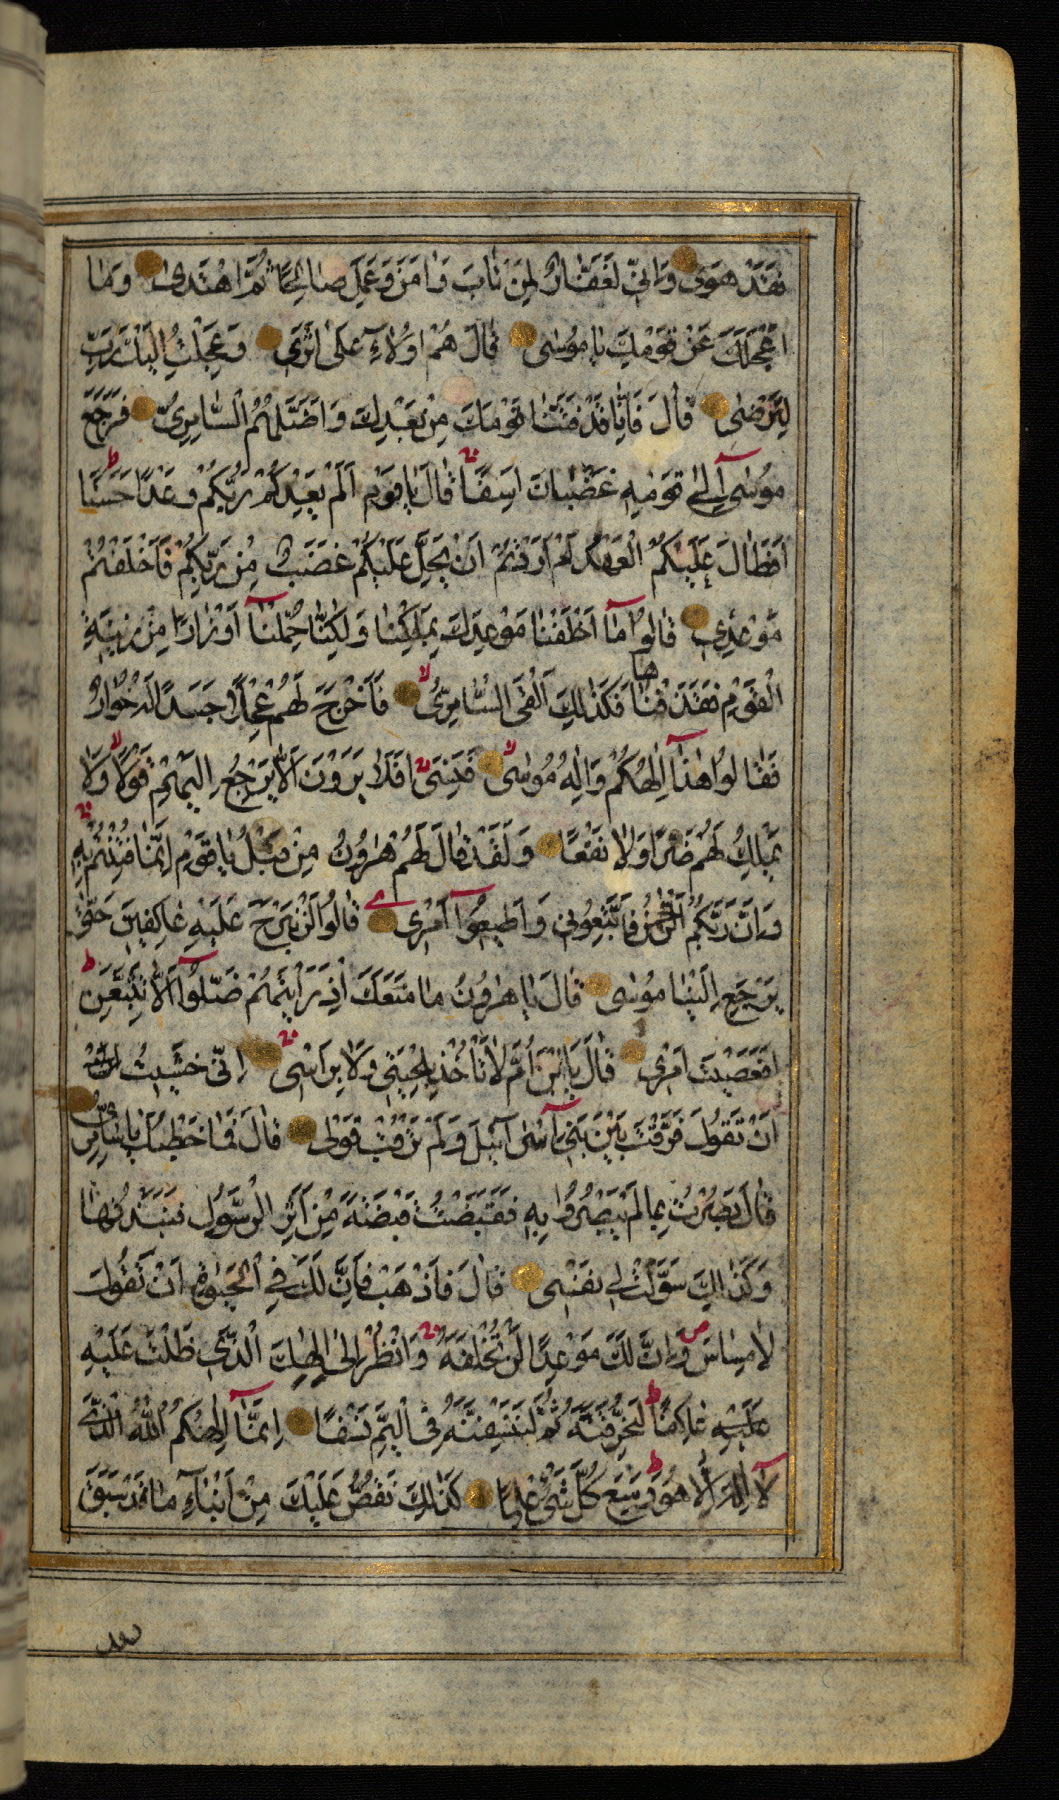 فَقَدْ هَوٰى وَاِنّى لَغَفَّارٌ لِمَنْ تَابَ وَاٰمَنَ وَعَمِلَ صَالِحًا ثُمَّ اهْتَدٰى وَمَا
اَعْجَلَكَ عَنْ قَوْمِكَ يَا مُوسٰى قَالَ هُمْ اُولَاءِ عَلٰى اَثَرِى وَعَجِلْتُ اِلَيْكَ رَبِّ
لِتَرْضٰى قَالَ فَاِنَّا قَدْ فَتَنَّا قَوْمَكَ مِنْ بَعْدِكَ وَاَضَلَّهُمُ السَّامِرِىُّ فَرَجَعَ
مُوسٰى اِلٰى قَوْمِهِ غَضْبَانَ اَسِفًا قَالَ يَا قَوْمِ اَلَمْ يَعِدْكُمْ رَبُّكُمْ وَعْدًا حَسَنًا
اَفَطَالَ عَلَيْكُمُ الْعَهْدُ اَمْ اَرَدْتُمْ اَنْ يَحِلَّ عَلَيْكُمْ غَضَبٌ مِنْ رَبِّكُمْ فَاَخْلَفْتُمْ
مَوْعِدِى قَالُوا مَا اَخْلَفْنَا مَوْعِدَكَ بِمَلْكِنَا وَلٰكِنَّا حُمِّلْنَا اَوْزَارًا مِنْ زِينَةِ
الْقَوْمِ فَقَذَفْنَاهَا فَكَذٰلِكَ اَلْقَى السَّامِرِىُّ فَاَخْرَجَ لَهُمْ عِجْلًا جَسَدًا لَهُ خُوَارٌ
فَقَالُوا هٰذَا اِلٰهُكُمْ وَاِلٰهُ مُوسٰى فَنَسِىَ اَفَلَا يَرَوْنَ اَلَّا يَرْجِعُ اِلَيْهِمْ قَوْلًا وَلَا
يَمْلِكُ لَهُمْ ضَرًّا وَلَا نَفْعًا وَلَقَدْ قَالَ لَهُمْ هٰرُونُ مِنْ قَبْلُ يَا قَوْمِ اِنَّمَا فُتِنْتُمْ بِهِ
وَاِنَّ رَبَّكُمُ الرَّحْمٰنُ فَاتَّبِعُونِى وَاَطِيعُوا اَمْرِى قَالُوا لَنْ نَبْرَحَ عَلَيْهِ عَاكِفِينَ حَتّٰى
يَرْجِعَ اِلَيْنَا مُوسٰى قَالَ يَا هٰرُونُ مَا مَنَعَكَ اِذْ رَاَيْتَهُمْ ضَلُّوا اَلَّا تَتَّبِعَنِ
اَفَعَصَيْتَ اَمْرِى قَالَ يَا ابْنَ اُمَّ لَا تَاْخُذْ بِلِحْيَتِى وَلَا بِرَاْسِى اِنِّى خَشِيتُ
اَنْ تَقُولَ فَرَّقْتَ بَيْنَ بَنِى اِسْرَائِيلَ وَلَمْ تَرْقُبْ قَوْلِى قَالَ فَمَا خَطْبُكَ يَا سَامِرِىُّ
قَالَ بَصُرْتُ بِمَا لَمْ يَبْصُرُوا بِهِ فَقَبَضْتُ قَبْضَةً مِنْ اَثَرِ الرَّسُولِ فَنَبَذْتُهَا
وَكَذٰلِكَ سَوَّلَتْ لِى نَفْسِى قَالَ فَاذْهَبْ فَاِنَّ لَكَ فِى الْحَيٰوةِ اَنْ تَقُولَ
لَا مِسَاسَ وَاِنَّ لَكَ مَوْعِدًا لَنْ تُخْلَفَهُ وَانْظُرْ اِلٰى اِلٰهِكَ الَّذِى ظَلْتَ عَلَيْهِ
عَلَيْهِ عَاكِفًا لَنُحَرِّقَنَّهُ ثُمَّ لَنَنْسِفَنَّهُ فِى الْيَمِّ نَسْفًا اِنَّمَا اِلٰهُكُمُ اللّٰهُ الَّذِى
لَا اِلٰهَ اِلَّا هُوَ وَسِعَ كُلَّ شَىْءٍ عِلْمًا كَذٰلِكَ نَقُصُّ عَلَيْكَ مِنْ اَنْبَاءِ مَا قَدْ سَبَقَ